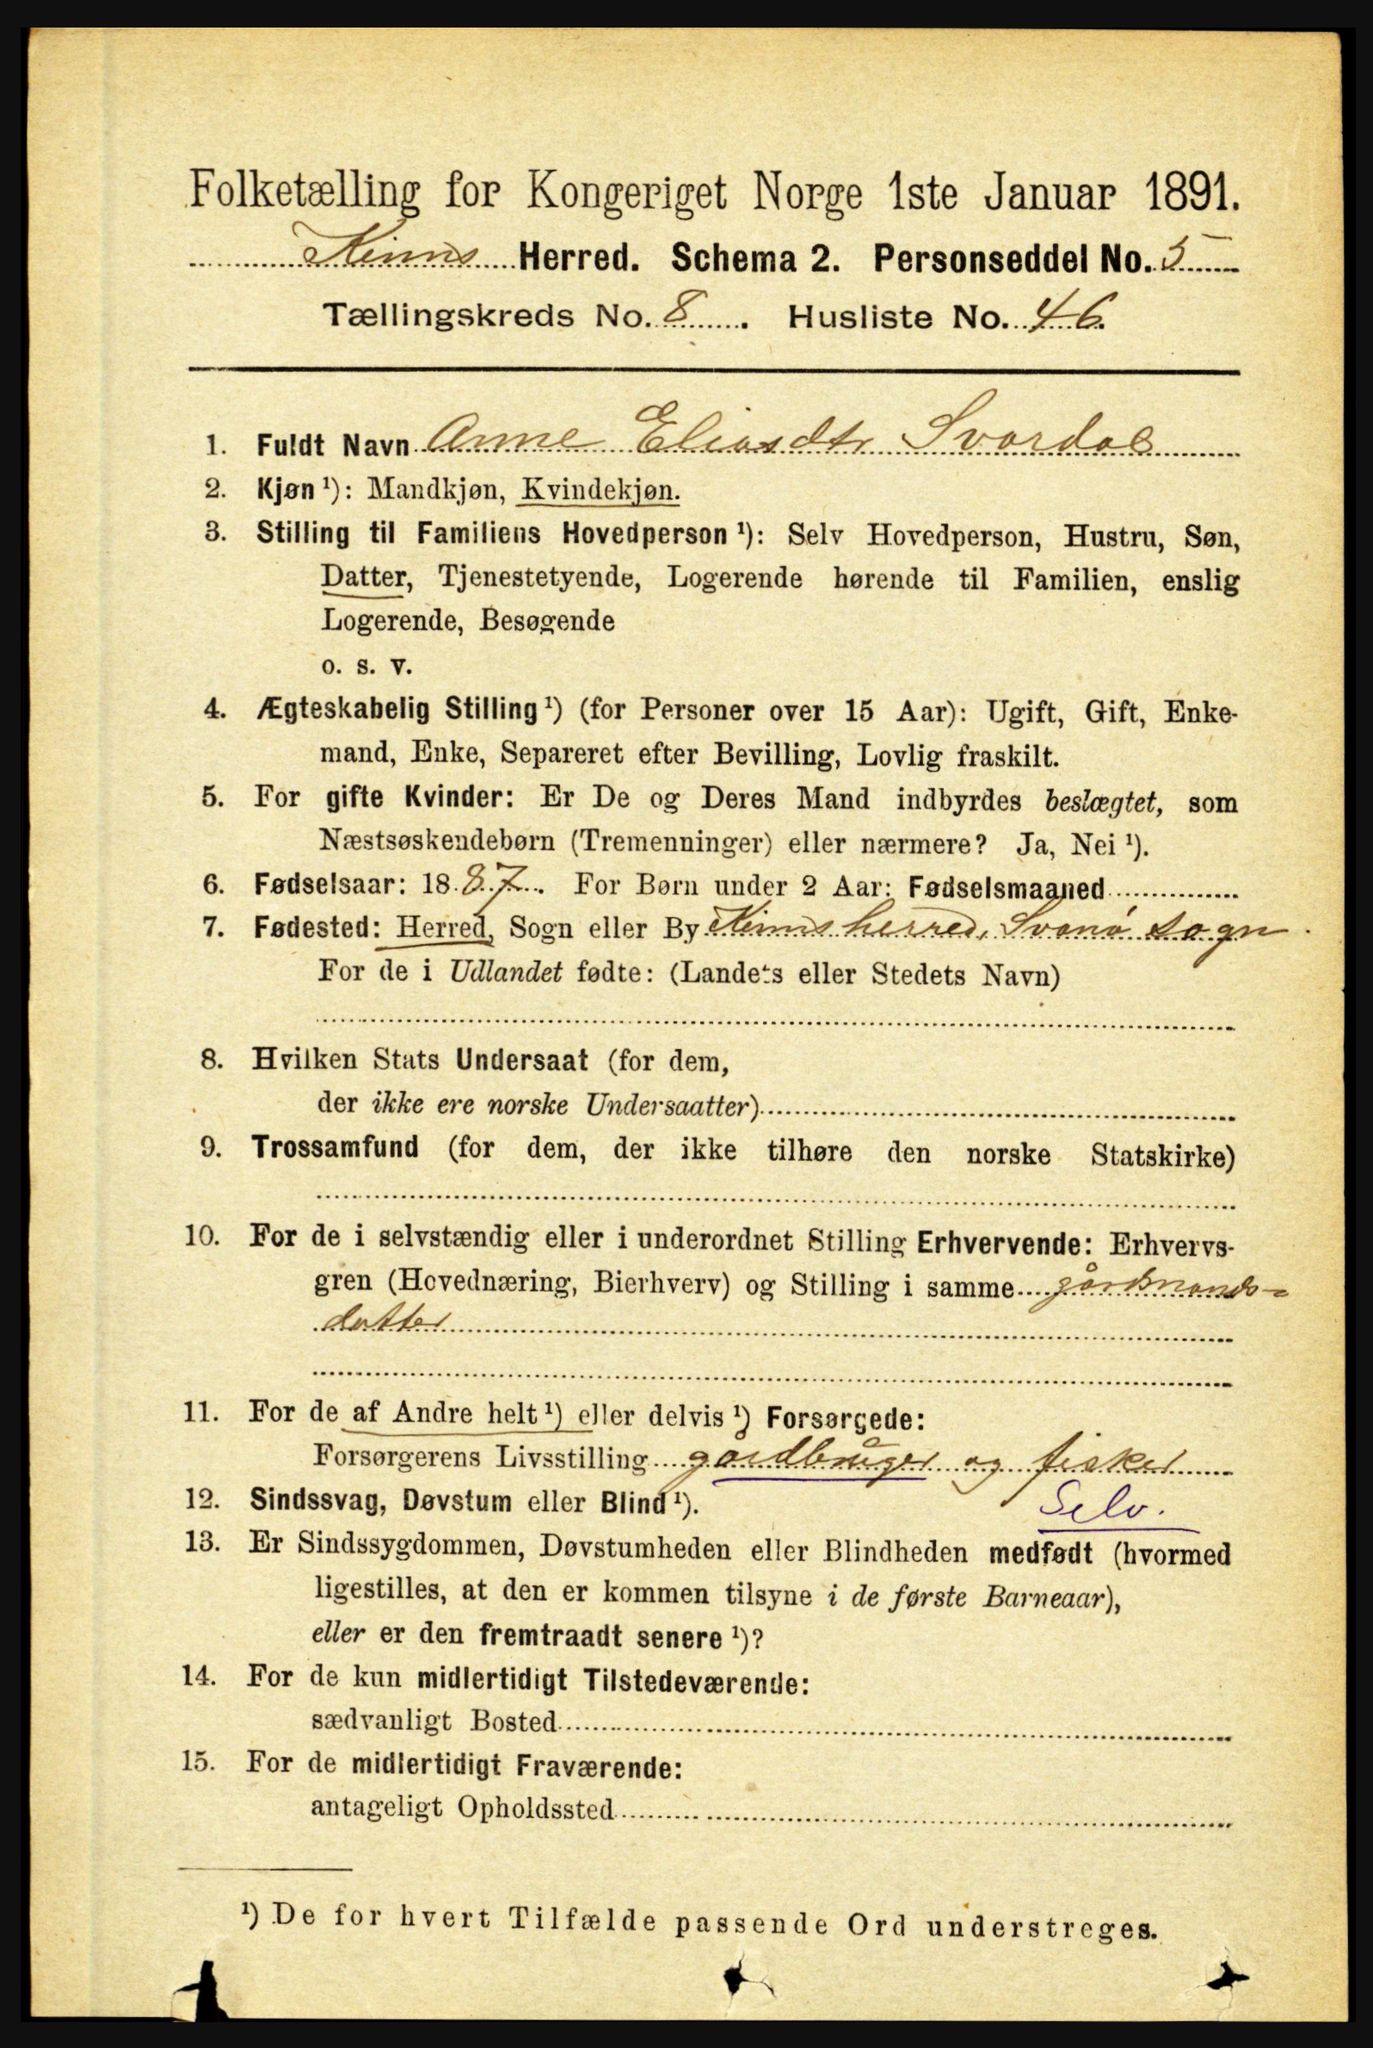 Folketælling for Kongeriget Norge 1ste Januar 1891.
Kinns Herred. Schema 2. Personseddel No. 5
Tællingskreds No. 8. Husliste No. 46.
1. Fuldt Navn Anne Eliasdtr Svardal
2. Kjøn ¹): Mandkjøn, Kvindekjøn.
3. Stilling til Familiens Hovedperson ¹): Selv Hovedperson, Hustru, Søn,
Datter, Tjenestetyende, Logerende hørende til Familien, enslig
Logerende, Besøgende
o. s. v.
4. Ægteskabelig Stilling ¹) (for Personer over 15 Aar): Ugift, Gift, Enke-
mand, Enke, Separeret efter Bevilling, Lovlig fraskilt.
5. For gifte Kvinder: Er De og Deres Mand indbyrdes beslægtet, som
Næstsøskendebørn (Tremenninger) eller nærmere? Ja, Nei ¹).
6. Fødselsaar: 1887. For Børn under 2 Aar: Fødselsmaaned
7. Fødested: Herred, Sogn eller By Kinns herred, Svanø sogn.
For de i Udlandet fødte: (Landets eller Stedets Navn)
8. Hvilken Stats Undersaat (for dem,
der ikke ere norske Undersaatter)
9. Trossamfund (for dem, der ikke tilhøre den norske Statskirke)
10. For de i selvstændig eller i underordnet Stilling Erhvervende: Erhvervs-
gren (Hovednæring, Bierhverv) og Stilling i samme gårdmands-
datter
11. For de af Andre helt ¹) eller delvis ¹) Forsørgede:
Forsørgerens Livsstilling gårdbruger og fisker
12. Sindssvag, Døvstum eller Blind ¹). Selv.
13. Er Sindssygdommen, Døvstumheden eller Blindheden medfødt (hvormed
ligestilles, at den er kommen tilsyne i de første Barneaar),
eller er den fremtraadt senere ¹)?
14. For de kun midlertidigt Tilstedeværende:
sædvanligt Bosted
15. For de midlertidigt Fraværende:
antageligt Opholdssted
¹) De for hvert Tilfælde passende Ord understreges.